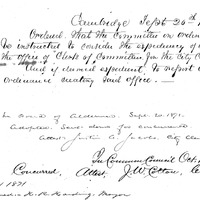 Cambridge Sept 20th
Ordered, That the Committee on Ordin
be instructed to consider the expediency of
the office of Clerk of Committees for the City
and if deemed expedient, to report
Ordinance creating said office.
In Board of Aldermen Sept. 20. 1871.
Adopted. Sent down for concurrence
Attest Justin A. Jacobs, City Cl
In Common Council Oct.
Concurred, Attest, J. W. Cotton, Cl
1871
H. R. Harding, Mayor